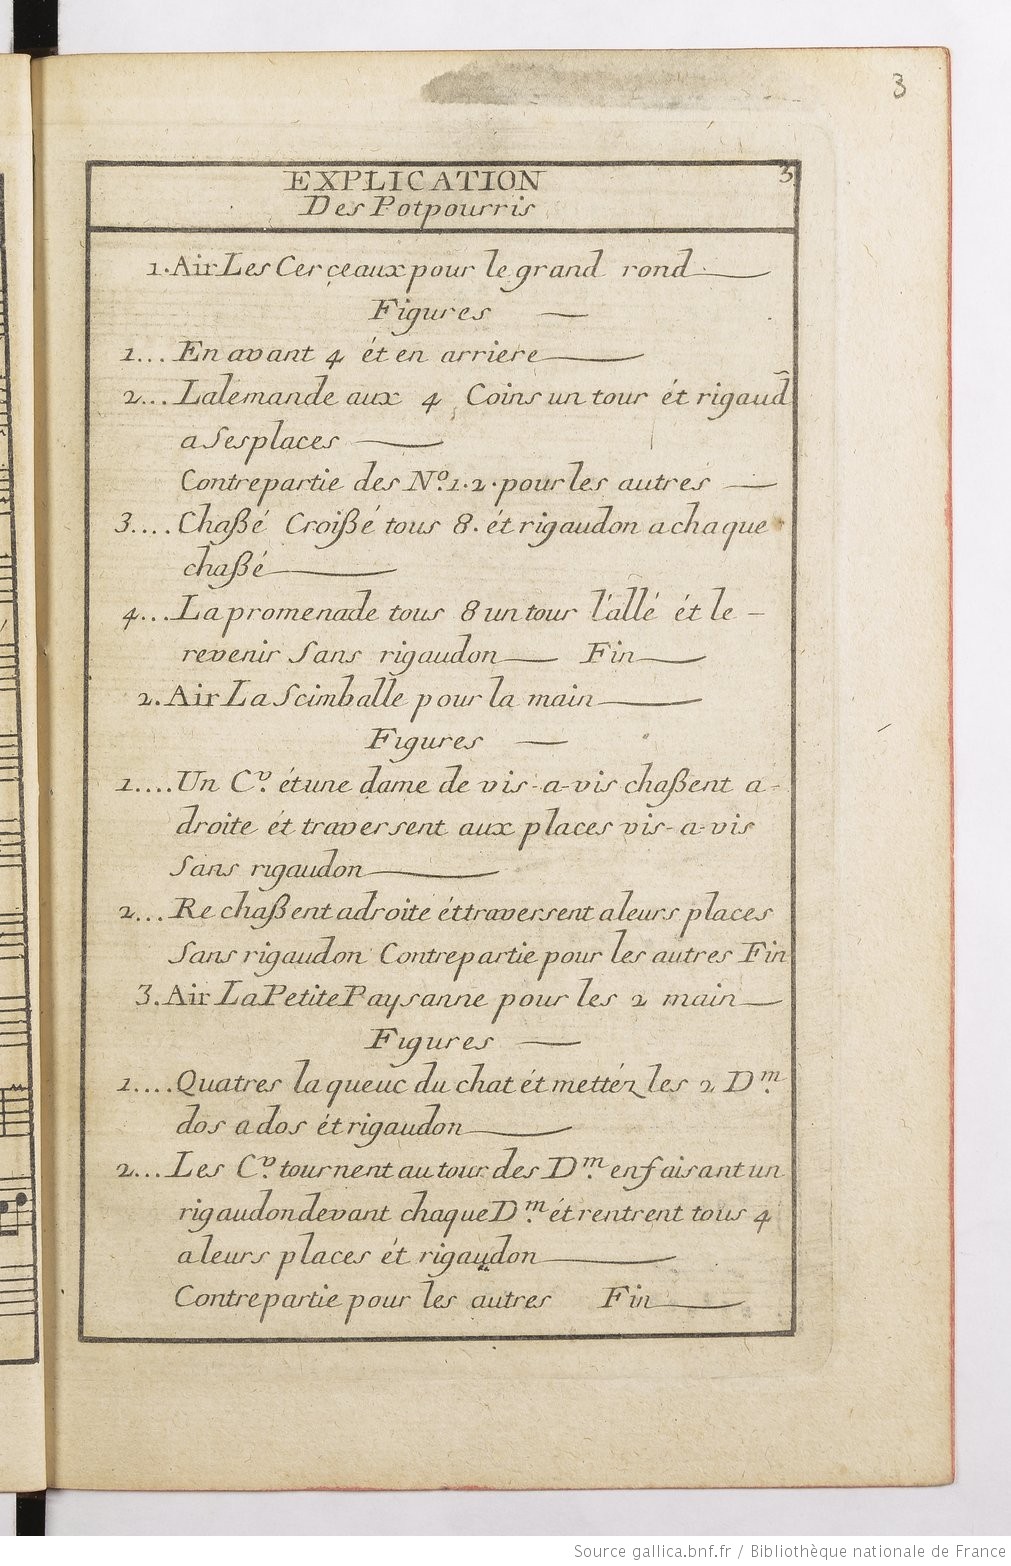 3
3
EXPLICATION
Des Potpourris
1. Air Les Cerçeaux pour le grand rond
Figures
1... En avant 4 ét en arriere
2... Lalemande aux 4 Coins un tour ét rigaud
a Ses places
Contrepartie des No. 1. 2. pour les autres
3.... Chaßé Croißé tous 8. ét rigaudon a chaque
chaßé
4... La promenade tous 8 un tour l'allé ét le -
revenir Sans rigaudon Fin
2. Air La Scimballe pour la main
Figures
1.... Un Cv. ét une dame de vis-a-vis chaßent a-
droite ét traversent aux places vis-a-vis
Sans rigaudon
2... Re chaßent a droite ét traversent a leurs places
Sans rigaudon Contrepartie pour les autres Fin
3. Air La Petite Paysanne pour les 2 main
Figures
1.... Quatres la queue du chat ét mettéz les 2 Dm.
dos a dos ét rigaudon
2... Les Cv. tournent au tour des Dm. en faisant un
rigaudon devant chaque Dm. ét rentrent tous 4
a leurs places ét rigaudon
Contrepartie pour les autres Fin
Source gallica.bnf.fr / Bibliothèque nationale de France